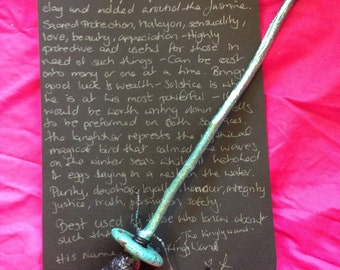 clay and added around the Jasmine.
Sacred Protection, halcyon, sensuality,
love, beauty, appreciation - Highly
protective and useful for those in
need of such things - Can be cast
onto many or one at a time. Brings
good luck & wealth - Solstice is when
he is at his most powerful - It
would be worth writing down
to be preformed on both Solstices.
the kingfisher represts the
magical bird that calmed the waves
on the winter seas whilst it hatched
eggs laying in a nest in the water.
Purity, devotion, loyalty, honour, integrity
justice, truth, safety.
Best used those who know about
such The Kingsland
His Kingsland